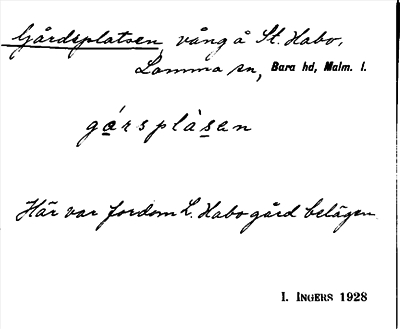 Gårdsplatsen, vång å St. Habo,
Lomma sn, Bara hd, Malm. l.
gǻrsplàsen
Här var fordom L. Habo gård belägen.
I. INGERS 1928